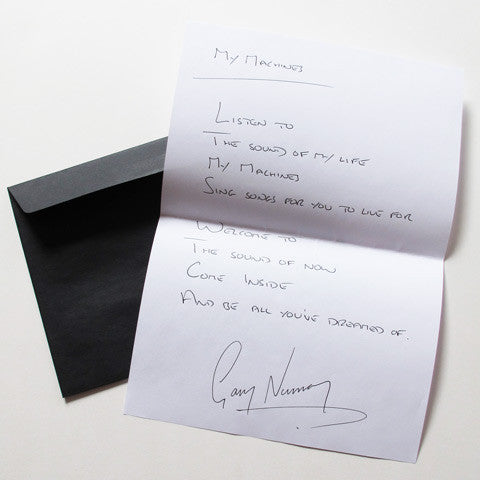 My Machines
Listen to
The sound of my life
My Machines
Sing songs for you to live for
Welcome to
The sound of now
Come inside
And be all you've dreamed of.
Gary Numan